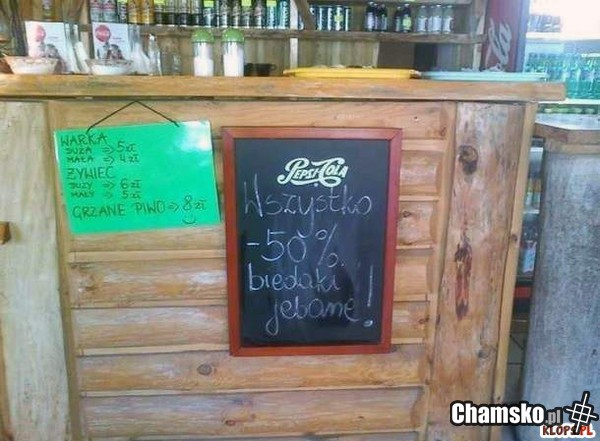 WARKA
DUŻA => 5 zł
MAŁA => 4 zł
ŻYWIEC
DUŻY => 6 zł
MAŁY => 5 zł
GRZANE PIWO => 8 zł
PEPSI-COLA
Wszystko
-50%
biedaki
jebane!
Chamsko.pl
KLOPS.PL